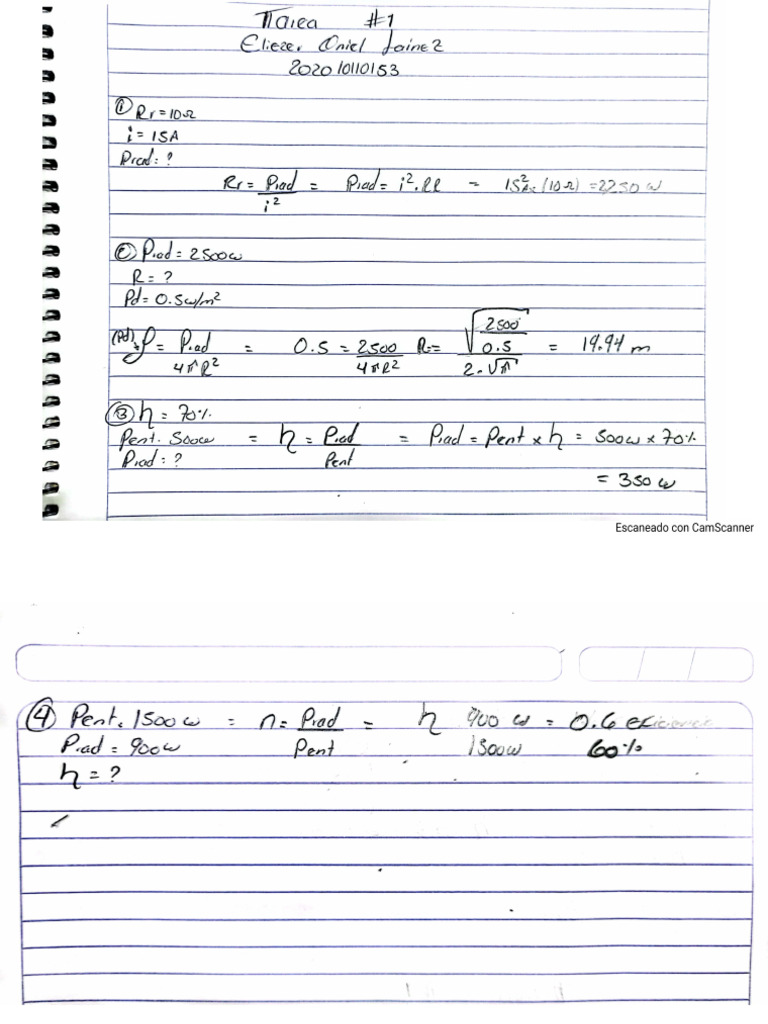 Tarea #1
Eliezer Oniel Lainez
202010110153
① Rr = 10Ω
i = 15A
Prad = ?
Rr = Prad / i² = Prad = i². RR = 15²A (10Ω) = 2250 w
② Prad = 2500w
R = ?
Pd = 0.5w/m²
(Pd) ρ = Prad / 4πR² = 0.5 = 2500 / 4πR² R = √(2500 / 0.5) / 2.√π = 19.94 m
③ η = 70%
Pent. 500w = η = Prad / Pent = Prad = Pent x η = 500w x 70%
Prad = ?
= 350 w
Escaneado con CamScanner
④ Pent. 1500 w = n = Prad / Pent = η 900 w / 1500w = 0.6 eficiencia
Prad = 900w 60%
η = ?